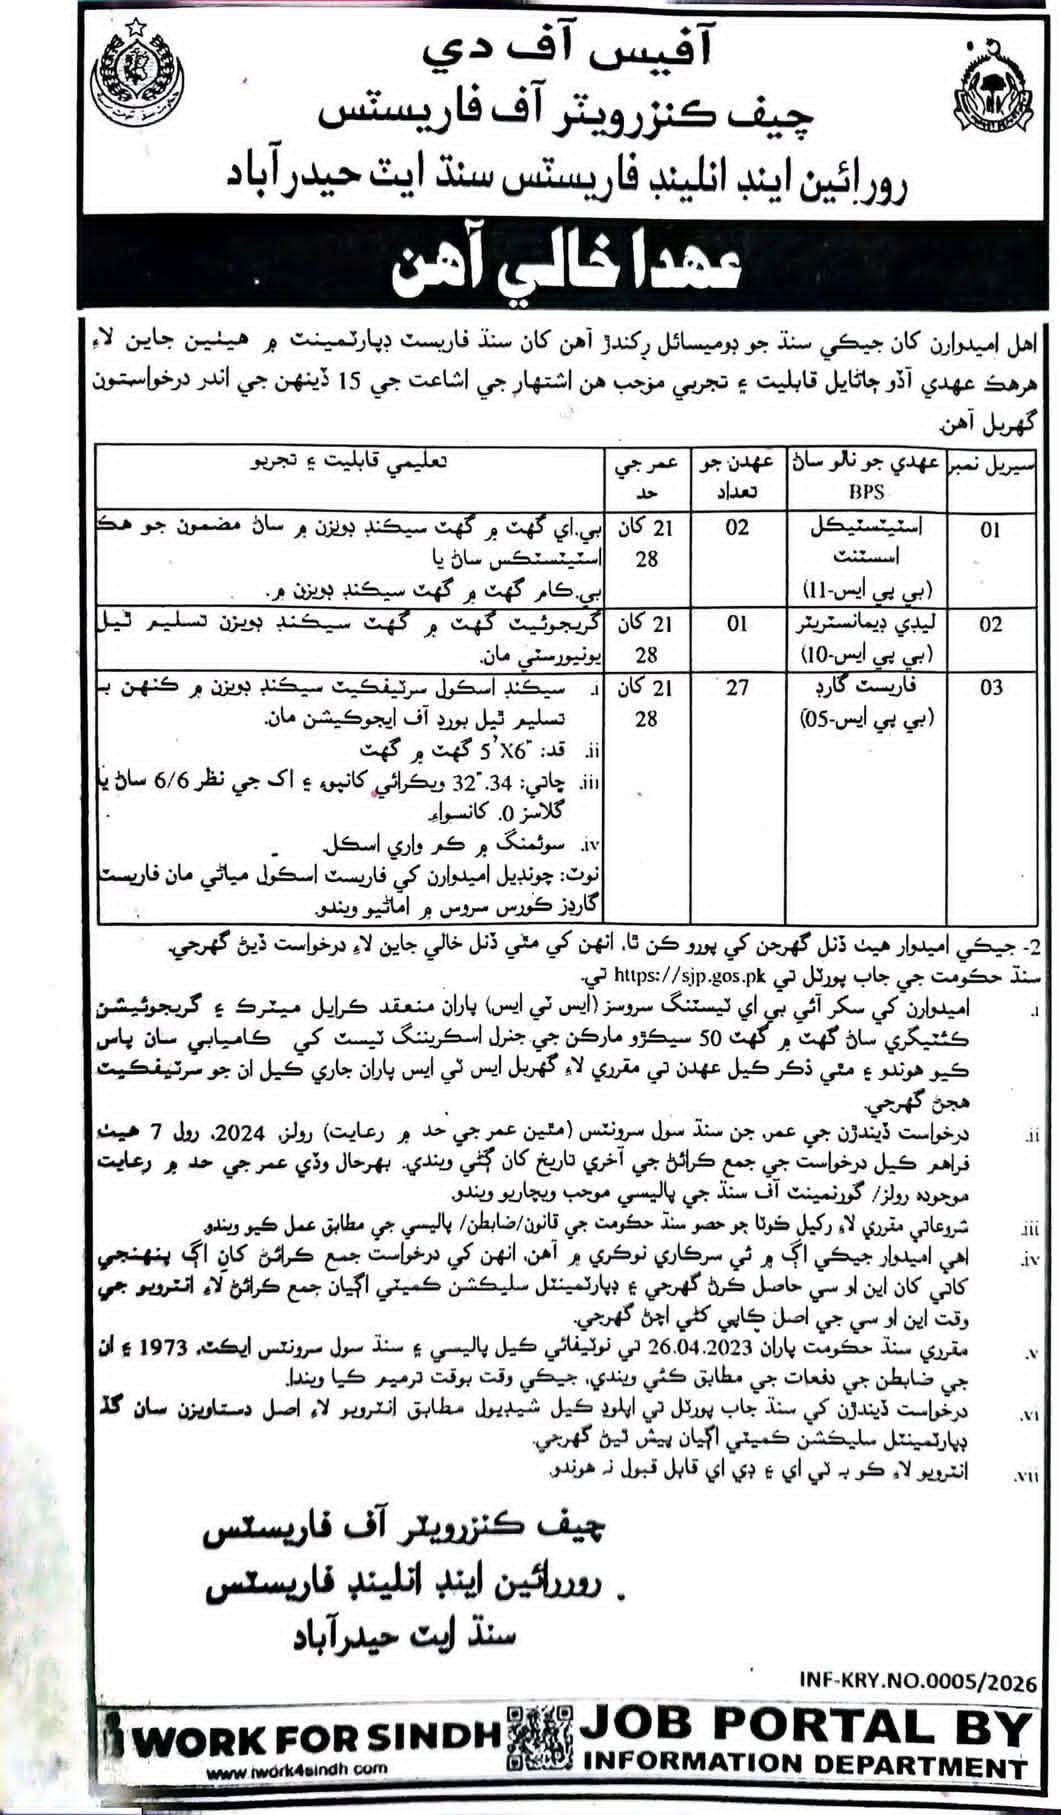 آفيس آف دي
چيف ڪنزرويٽر آف فاريسٽس
رورائين اينڊ انلينڊ فاريسٽس سنڌ ايٽ حيدرآباد
عهدا خالي آهن
اهل اميدوارن کان جيڪي سنڌ جو ڊوميسائل رکندڙ آهن کان سنڌ فاريسٽ ڊپارٽمينٽ ۾ هيٺين جاين لاءِ
هرهڪ عهدي آڏو ڄاڻايل قابليت ۽ تجربي موجب هن اشتهار جي اشاعت جي 15 ڏينهن جي اندر درخواستون
گهربل آهن.
سيريل نمبر عهدي جو نالو ساڻ BPS عهدن جو تعداد عمر جي حد تعليمي قابليت ۽ تجربو
01 اسٽيٽسٽيڪل اسسٽنٽ (بي پي ايس-11) 02 21 کان 28 بي.اي گهٽ ۾ گهٽ سيڪنڊ ڊويزن ۾ ساڻ مضمون جو هڪ
اسٽيٽسٽڪس ساڻ يا
بي.ڪام گهٽ ۾ گهٽ سيڪنڊ ڊويزن ۾.
02 ليڊي ڊيمانسٽريٽر (بي پي ايس-10) 01 21 کان 28 گريجوئيٽ گهٽ ۾ گهٽ سيڪنڊ ڊويزن تسليم ٿيل
يونيورسٽي مان.
03 فاريسٽ گارڊ (بي پي ايس-05) 27 21 کان 28 i. سيڪنڊ اسڪول سرٽيفڪيٽ سيڪنڊ ڊويزن ۾ ڪنهن بہ
تسليم ٿيل بورڊ آف ايجوڪيشن مان.
ii. قد: 5'X6" گهٽ ۾ گهٽ
iii. ڇاتي: 34."32 ويڪرائي کانپوءِ ۽ اک جي نظر 6/6 ساڻ يا
گلاسز 0. کانسواءِ
iv. سوئمنگ ۾ ڪم واري اسڪل.
نوٽ: چونڊيل اميدوارن کي فاريسٽ اسڪول مياڻي مان فاريسٽ
گارڊز ڪورس سروس ۾ اماڻيو ويندو.
2- جيڪي اميدوار هيٺ ڏنل گهرجن کي پورو ڪن ٿا، انهن کي مٿي ڏنل خالي جاين لاءِ درخواست ڏيڻ گهرجي.
سنڌ حڪومت جي جاب پورٽل تي https://sjp.gos.pk تي.
i. اميدوارن کي سکر آئي بي اي ٽيسٽنگ سروسز (ايس ٽي ايس) پاران منعقد ڪرايل ميٽرڪ ۽ گريجوئيشن
ڪئٽيگري ساڻ گهٽ ۾ گهٽ 50 سيڪڙو مارڪن جي جنرل اسڪريننگ ٽيسٽ کي ڪاميابي سان پاس
ڪيو هوندو ۽ مٿي ذڪر ڪيل عهدن تي مقرري لاءِ گهربل ايس ٽي ايس پاران جاري ڪيل ان جو سرٽيفڪيٽ
هجڻ گهرجي.
ii. درخواست ڏيندڙن جي عمر، جن سنڌ سول سرونٽس (مٿين عمر جي حد ۾ رعايت) رولز، 2024، رول 7 هيٺ
فراهم ڪيل درخواست جي جمع ڪرائڻ جي آخري تاريخ کان ڳڻي ويندي. بهرحال وڏي عمر جي حد ۾ رعايت
موجوده رولز/ گورنمينٽ آف سنڌ جي پاليسي موجب ويچاريو ويندو.
iii. شروعاتي مقرري لاءِ رکيل ڪوٽا جو حصو سنڌ حڪومت جي قانون/ضابطن/ پاليسي جي مطابق عمل ڪيو ويندو.
iv. اهي اميدوار جيڪي اڳ ۾ ئي سرڪاري نوڪري ۾ آهن، انهن کي درخواست جمع ڪرائڻ کان اڳ پنهنجي
کاتي کان اين او سي حاصل ڪرڻ گهرجي ۽ ڊپارٽمينٽل سليڪشن ڪميٽي اڳيان جمع ڪرائڻ لاءِ انٽرويو جي
وقت اين او سي جي اصل ڪاپي کڻي اچڻ گهرجي.
v. مقرري سنڌ حڪومت پاران 26.04.2023 تي نوٽيفائي ڪيل پاليسي ۽ سنڌ سول سرونٽس ايڪٽ، 1973 ۽ ان
جي ضابطن جي دفعات جي مطابق ڪئي ويندي، جيڪي وقت بوقت ترميم ڪيا ويندا.
vi. درخواست ڏيندڙن کي سنڌ جاب پورٽل تي اپلوڊ ڪيل شيڊيول مطابق انٽرويو لاءِ اصل دستاويزن سان گڏ
ڊپارٽمينٽل سليڪشن ڪميٽي اڳيان پيش ٿيڻ گهرجي.
vii. انٽرويو لاءِ ڪو بہ ٽي اي ۽ ڊي اي قابل قبول نہ هوندو.
چيف ڪنزرويٽر آف فاريسٽس
رورائين اينڊ انلينڊ فاريسٽس
سنڌ ايٽ حيدرآباد
INF-KRY.NO.0005/2026
i WORK FOR SINDH
www.iwork4sindh.com
JOB PORTAL BY
INFORMATION DEPARTMENT